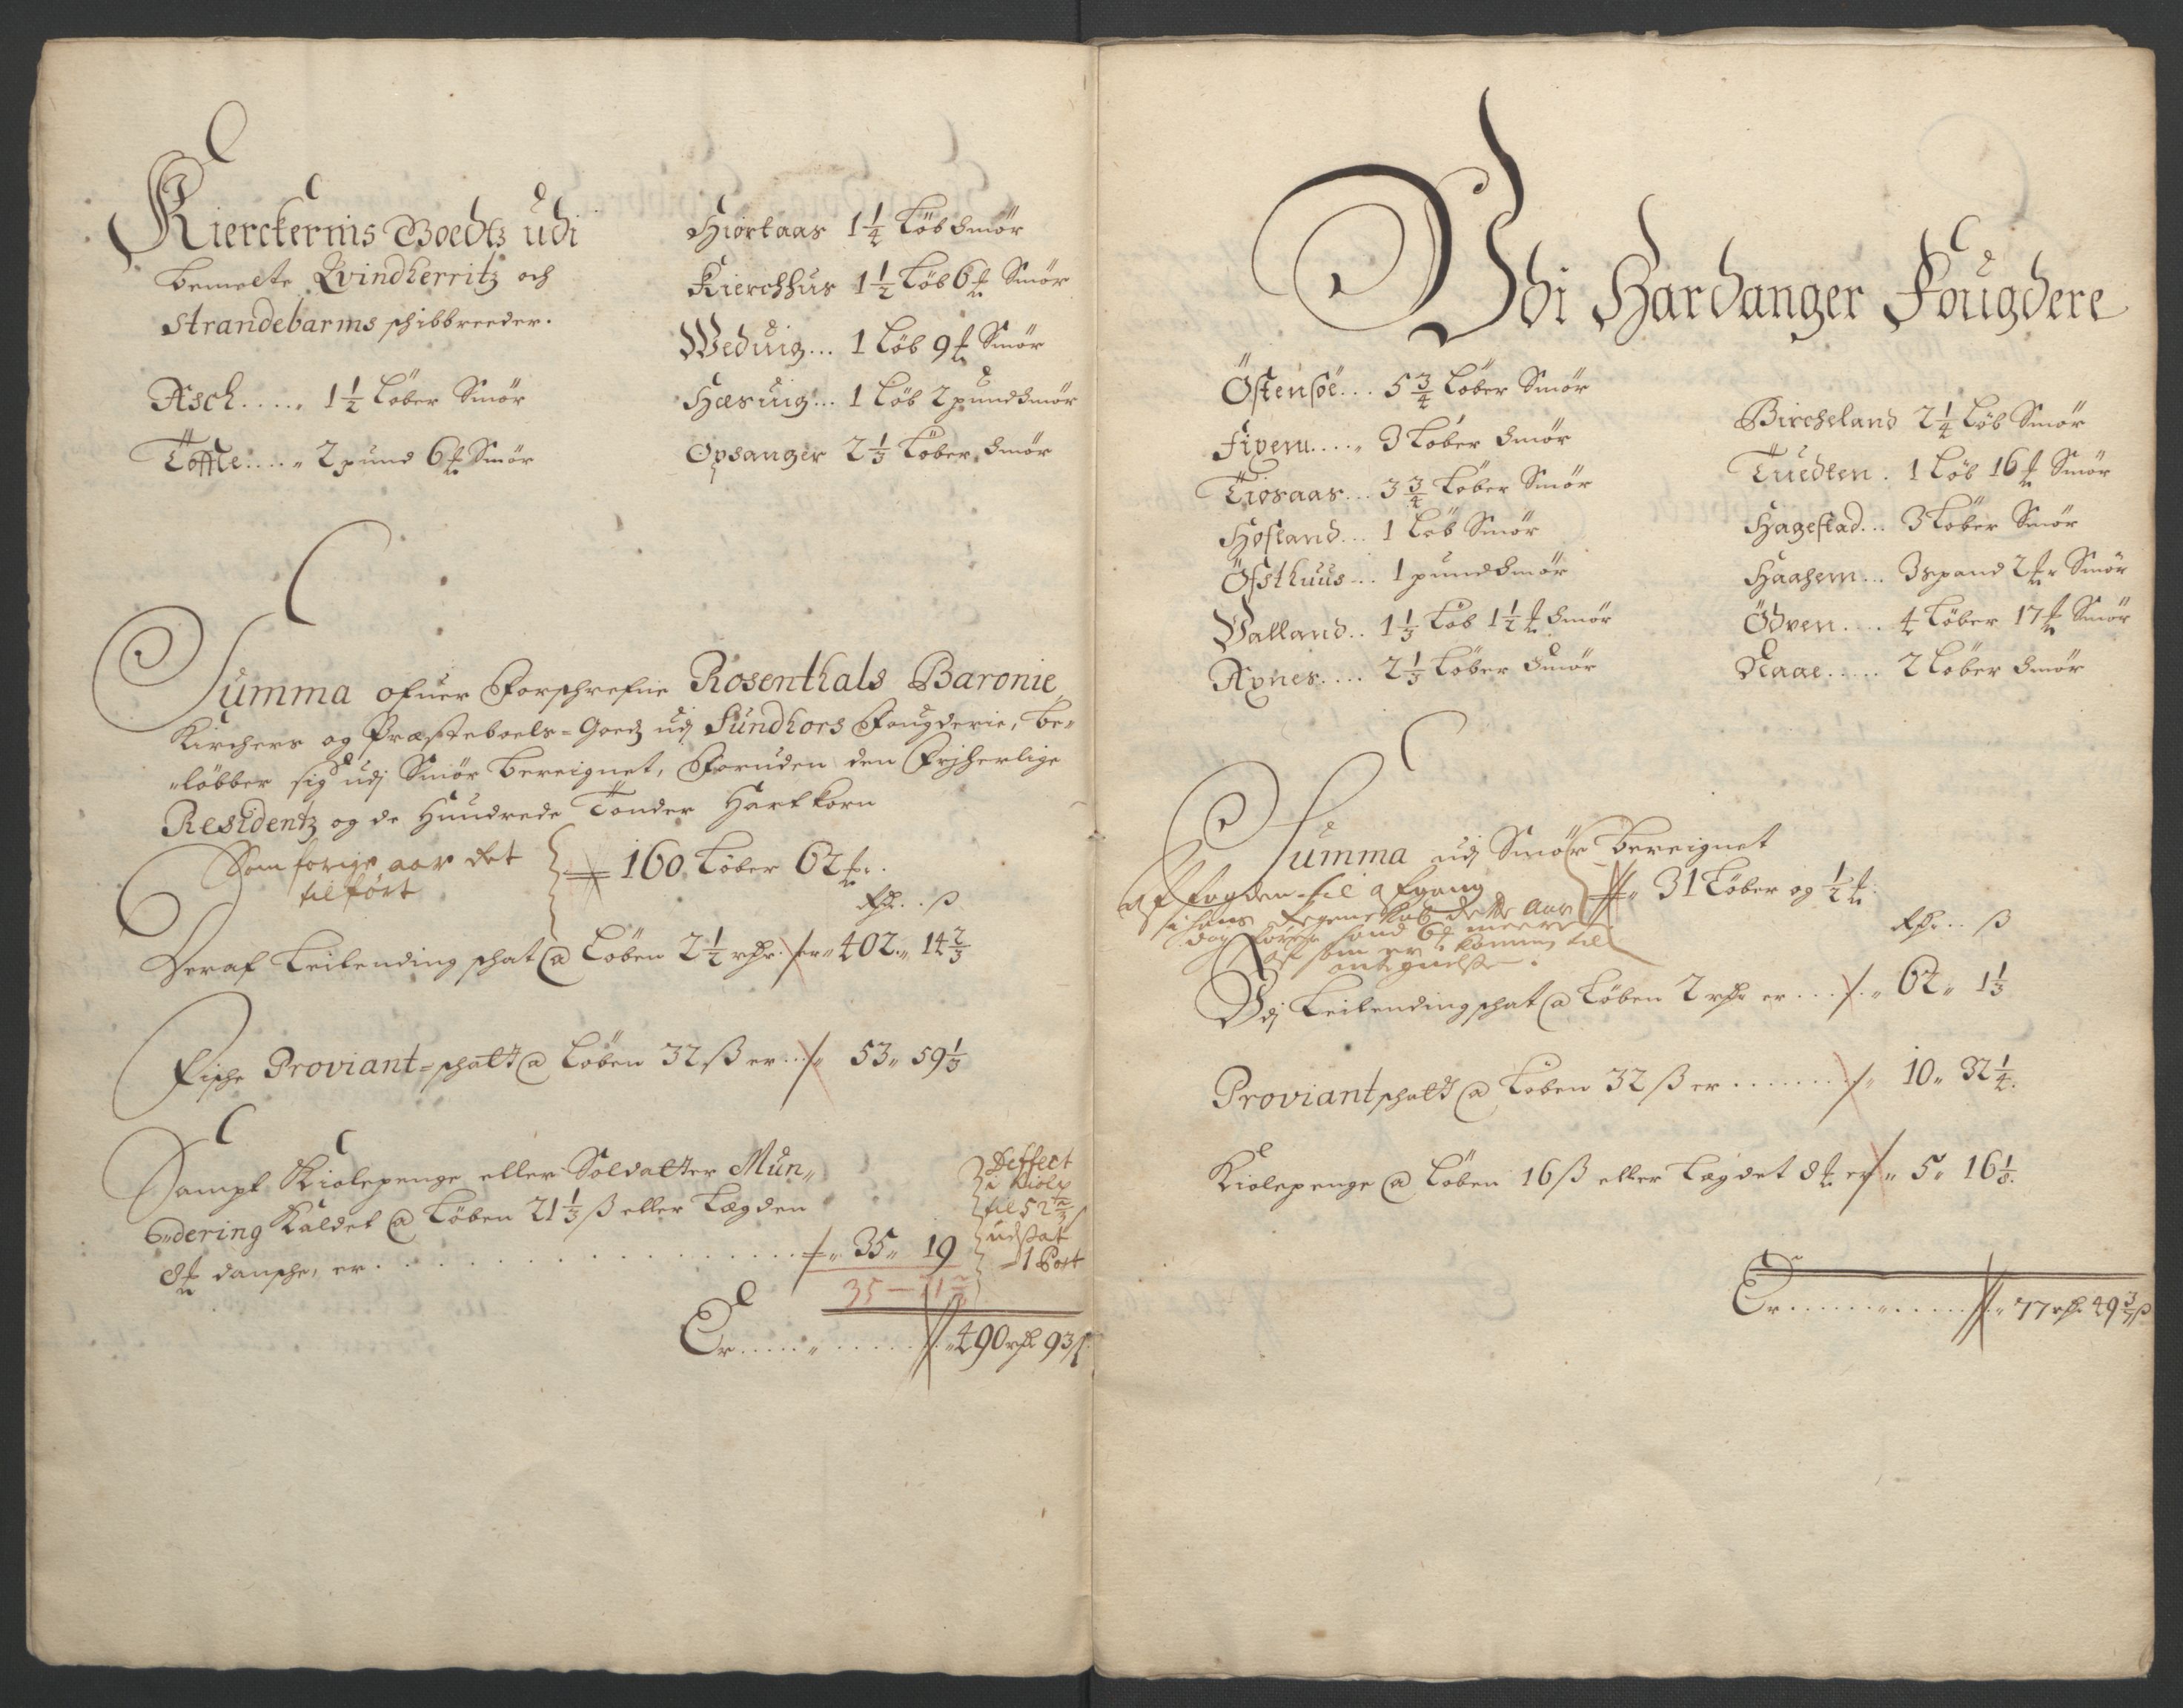 Kierckernis Goedtz udi
bemelte Qvindherritz och
Strandebarms schibbreeder.
Asch..... 1½ Løber Smør
Tofftte..... 2 pund 6 ℔ Smør
Hiortaas 1¼ Løb Smør
Kierchhus 1½ Løb 6 ℔ Smør
Weduig... 1 Løb 9 ℔ Smør
Hæsuig... 1 Løb 2 pund Smør
Opsanger 2⅓ Løber Smør
Summa ofuer Forschrefne Rosenthals Baronie
Kirchers og Præsteboels-Goedz udj Sundhors Fougderie, be-
løbber sig udj Smør bereignet, Foruden den Frjherlige
Residentz og de Hundrede Tønder Hartkorn
Som forige aar det
til ført
160 Løber 62 ℔.
Rdr. ß
Deraf Leilending schat @ Løben 2½ rdr. er 402 „ 14⅔
Fische Proviant-schatt @ Løben 32 ß er... 53 „ 59⅓
Sampt Kiolepenge eller Soldatter Mun-
dering Kaldet @ Løben 21⅓ ß eller Lægden
8 ℔ dansche, er......... 35 „ 19
Deffect
i Kiolp
til 52⅔ ß
udsat
1 Post
35 — 71⅔
Er.......... 490 rdr 93 ß
Udi Hardanger Fougdere
Östensöe... 5¾ Løber Smør
Fixeru..... 3 Løber Smør
Tiosaas... 3¾ Løber Smør
Hofland... 1 Løb Smør
Öfsthuus... 1 pund Smør
Valland.. 1⅓ Løb 1½ ℔ Smør
Axnes.... 2⅓ Løber Smør
Bircheland 2¼ Løb Smør
Tuedten. 1 Løb 16 ℔ Smør
Hagestad... 3 Løber Smør
Haahem... 3 spand 2 ℔r Smør
Ödven.... 4 Løber 17 ℔ Smør
Naae..... 2 Løber Smør
Summa udj Smør bereignet
31 Løber og ½ ℔.
af fogden til afgang
i hans Regenskab dette Aar
dog føres 6 ℔ meere
som er kommen til
antegnelse.
Rdr... ß
Udj Leilending schat @ Løben 2 rdr er... 62 „ 1⅓
Proviant schatt @ Løben 32 ß er....... 10 „ 32¼.
Kiolepenge @ Løben 16 ß eller Lægdet 8 ℔ er „ 5 „ 16⅛.
Er.......... 77 rdr 49¾ ß